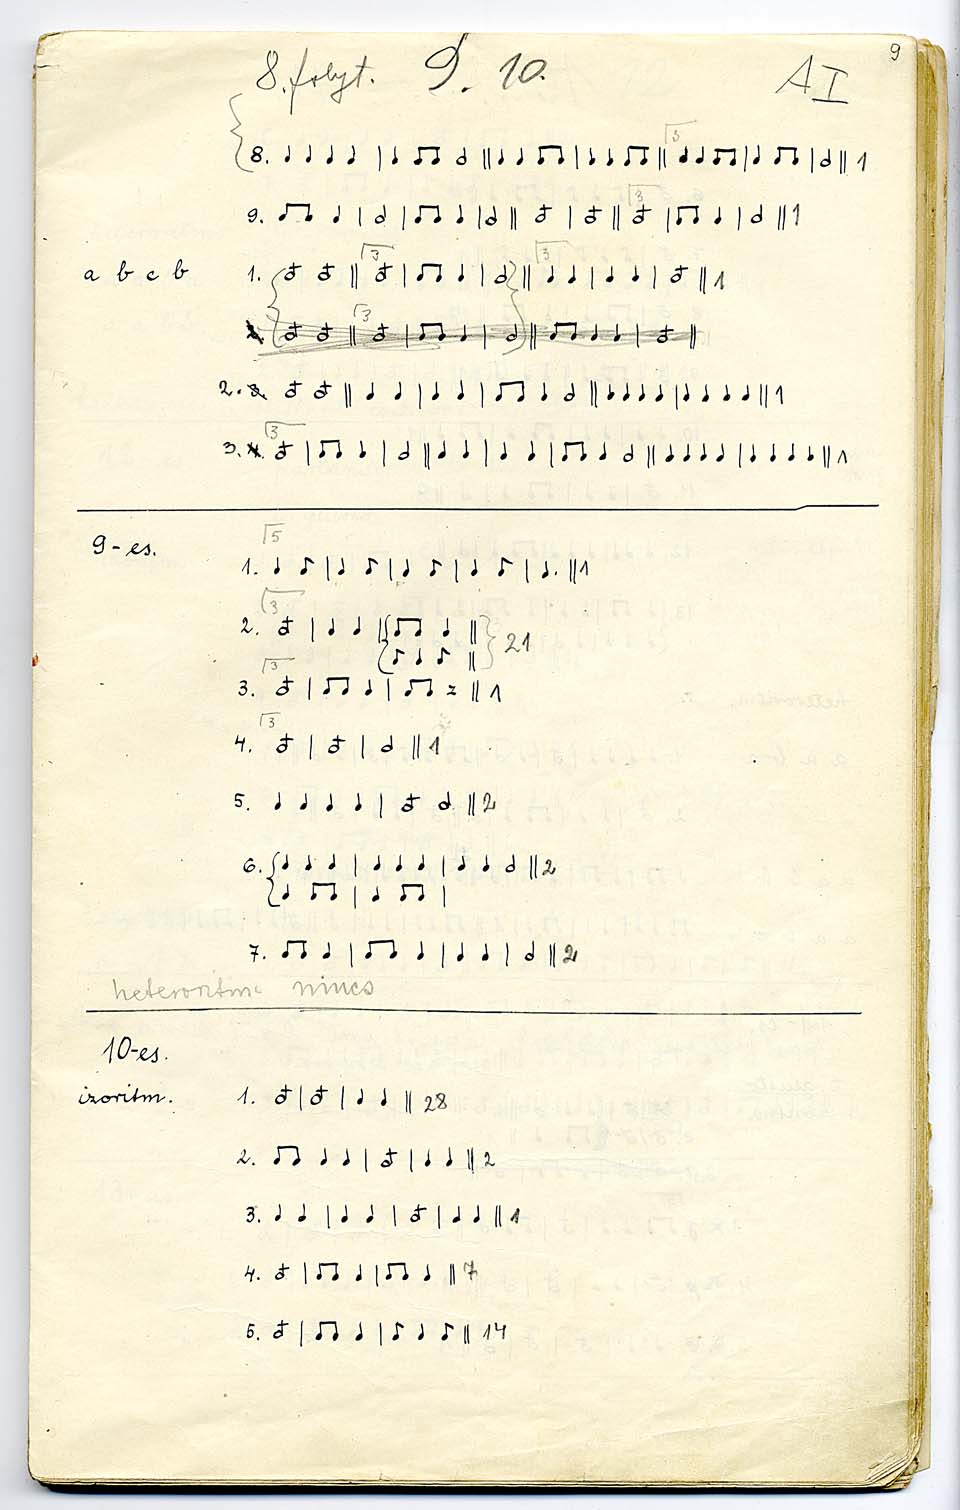 9
8. folyt. 9. 10. AI
3
8. 1
3
9. 1
3 3
a b c b 1. 1
3
2. 1
3
3. 1
9-es.
5
1. 1
3
2. 21
3
3. 1
3
4. 1
5. 2
6. 2
7. 2
heteroritm nincs
10-es.
izoritm. 1. 28
2. 2
3. 1
4. 7
5. 14